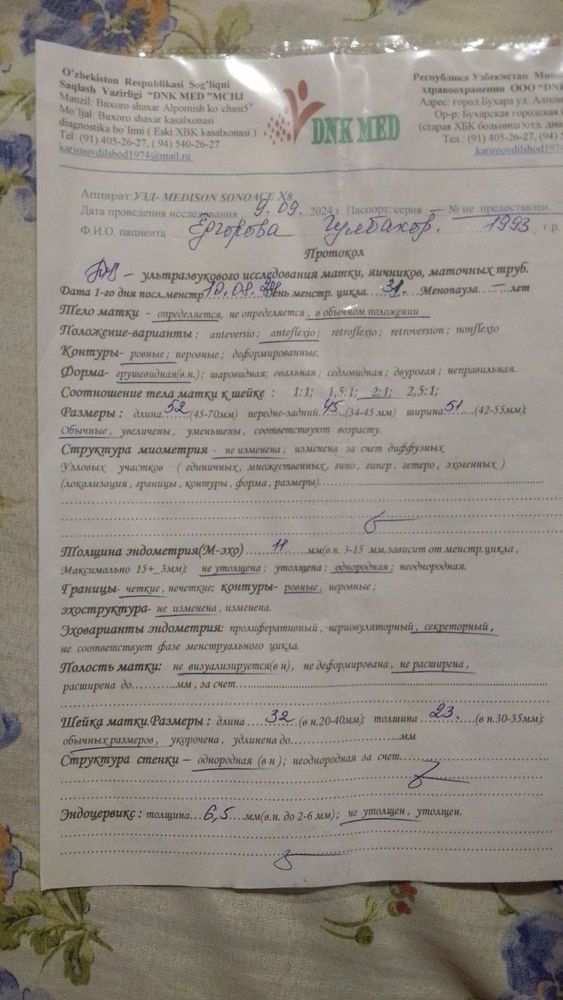 O'zbekiston Respublikasi Sog'liqni
Saqlash Vazirligi "DNK MED "MCHJ
Manzil: Buxoro shaxar Alpomish ko'chasi5"
Mo'ljal: Buxoro shaxar kasalxonasi
diagnostika bo'limi ( Eski XBK kasalxonasi )
Tel: (91) 405-26-27, ( 94) 540-26-27
karimovdilshod1974@mail.ru
DNK MED
Республика Узбекистан Мин
здравоохранения ООО "DNK
Адрес: город Бухара ул. Алпом
Ор-р: Бухарская городская
(старая ХБК больница отд. диа
Тел.: (91) 405-26-27, (94)
karimovdilshod197
Аппарат УЗД- MEDISON SONOACE X8
Дата проведения исследования 9.09. 2024 г. Паспорт: серия — № не предоставлен
Ф.И.О. пациента Ергорова Гулбахор. 1993 г.р.
Протокол
- ультразвукового исследования матки, яичников, маточных труб.
Дата 1-го дня посл.менстр 10.08.24 День менстр. цикла 31. Менопауза — лет
Тело матки - определяется, не определяется, в обычном положении
Положение-варианты : anteversio ; anteflexio ; retroflexio ; retroversion ; nonflexio
Контуры- ровные; неровные; деформированные.
Форма- грушевидная(в.н.); шаровидная; овальная ; седловидная; двурогая ; неправильная.
Соотношение тела матки к шейке : 1:1; 1,5:1; 2:1; 2,5:1;
Размеры : длина 52 (45-70мм) передне-задний 45 (34-45 мм) ширина 51 (42-55мм);
Обычные, увеличены, уменьшены, соответствуют возрасту.
Структура миометрия - не изменена; изменена за счет диффузных
Узловых участков ( единичных, множественных, гипо, гипер, гетеро, эхогенных )
(локализация , границы, контуры , форма , размеры)
Толщина эндометрия(М-эхо) 11 мм(в.н. 3-15 мм,зависит от менстр.цикла ,
Максимально 15+_3мм); не утолщена; утолщена; однородная; неоднородная.
Границы- четкие, нечеткие; контуры- ровные, неровные ;
эхоструктура- не изменена, изменена.
Эховарианты эндометрия: пролиферативный , периовуляторный , секреторный ,
не соответствует фазе менструального цикла.
Полость матки: не визуализируется(в н), не деформирована, не расширена ,
расширена до мм , за счет
Шейка матки.Размеры : длина 32 (в н.20-40мм); толщина 23 (в н.30-35мм);
обычных размеров, укорочена, удлинена до мм
Структура стенки – однородная (в н); неоднородная за счет
Эндоцервикс : толщина 6,5 мм(в н. до 2-6 мм) ; не утолщен, утолщен.